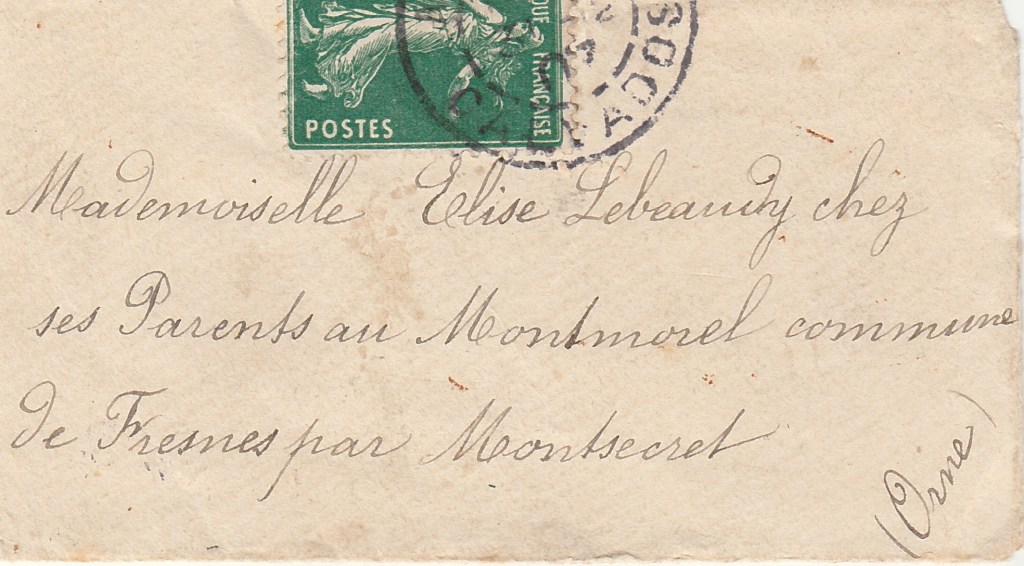 QUE FRANÇAISE
POSTES
CALVADOS
Mademoiselle Elise Lebeaudy chez
ses Parents au Montmorel commune
de Fresnes par Montsecret
(Orne)